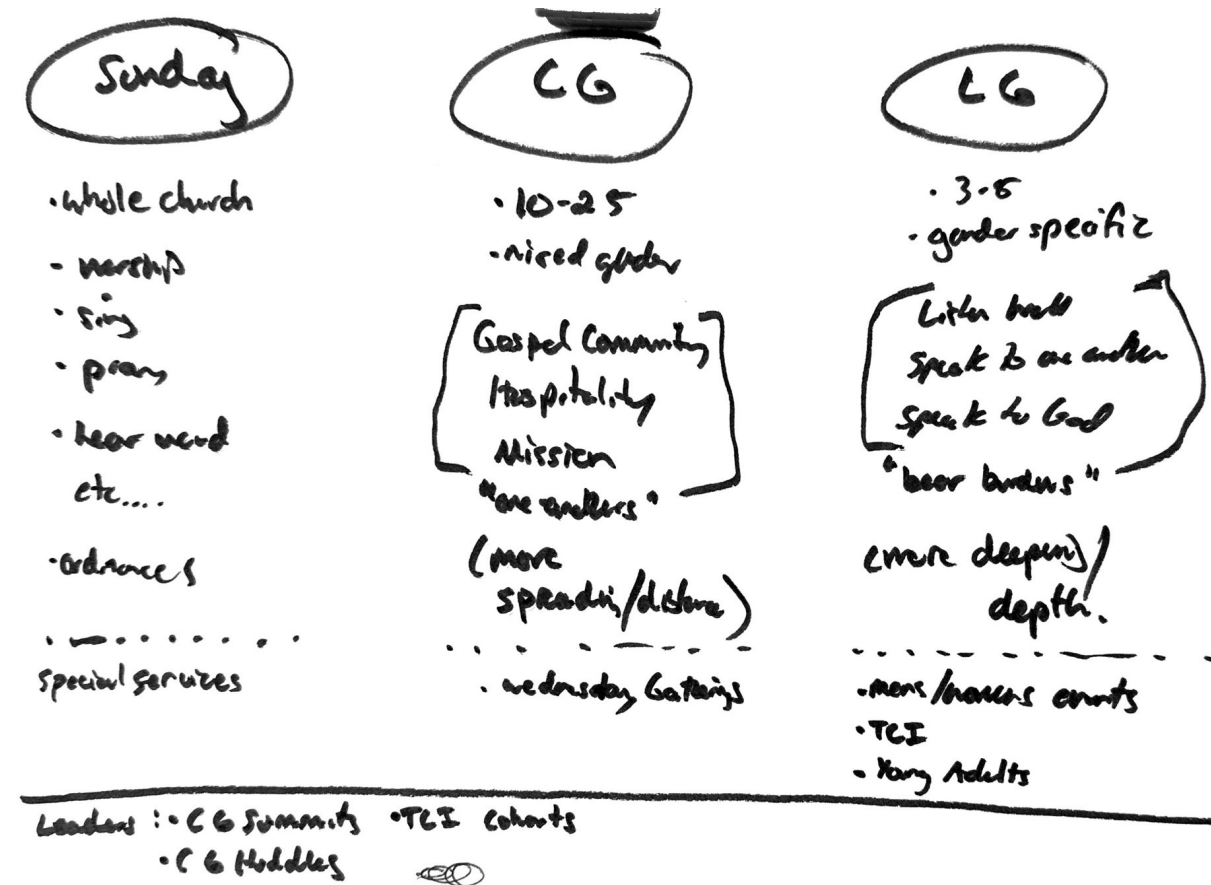 Sunday
• whole church
- worship
• sing
• pray
• hear word
etc....
• ordinances
special services
CG
• 10-25
• mixed gender
Gospel Community
Hospitality
Mission
"one anothers"
(more
spreading/distance)
• wednesday Gatherings
LG
• gender specific
Listen
Speak to one another
Speak to God
"bear burdens"
(more deepen)/
depth.
• mens/womens events
• TCI
• Young Adults
Leaders: • CG Summits • TCI Cohorts
• CG Huddles